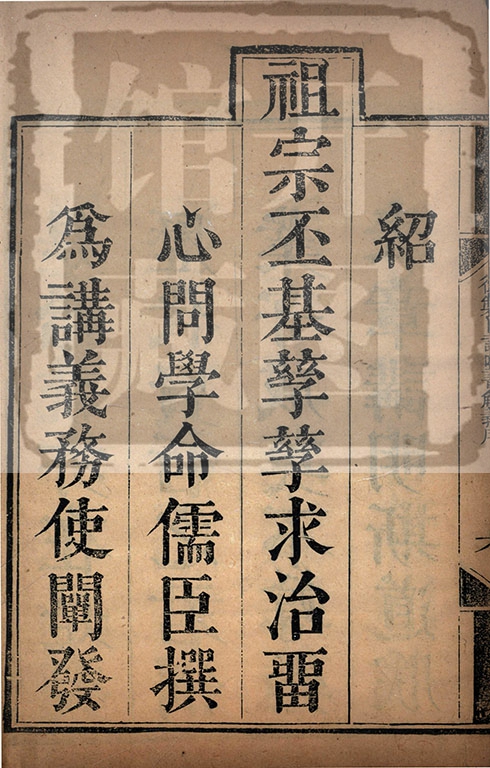 紹
祖宗丕基孳孳求治畱
心問學命儒臣撰
為講義務使闡發